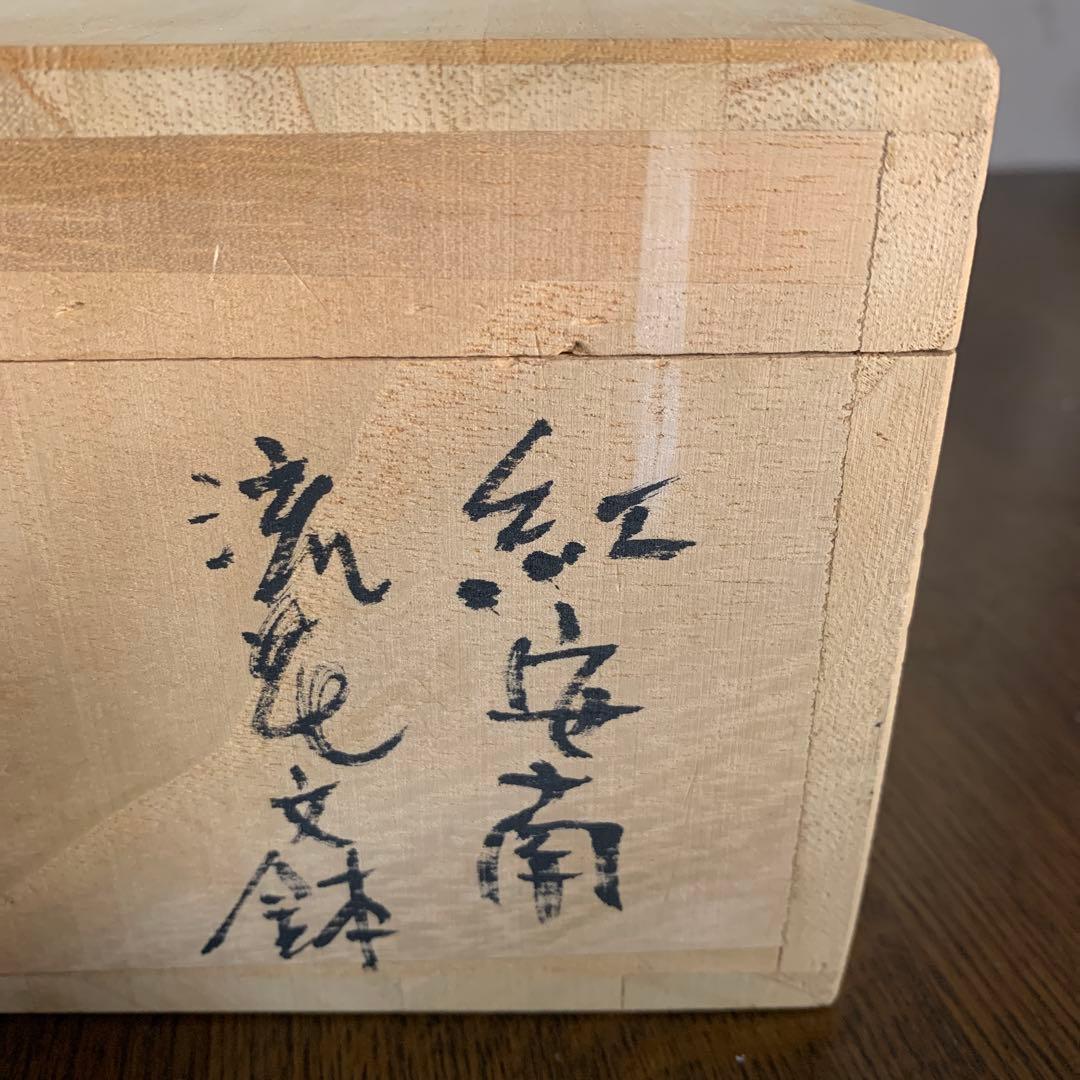 紅安南
流文鉢